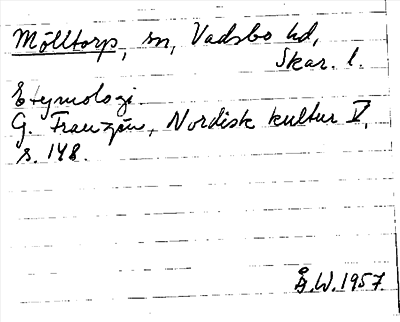 Mölltorp, sn, Vadsbo hd,
Skar. l.
Etymologi.
G. Franzén, Nordisk kultur V,
s. 148.
Å.W. 1957.